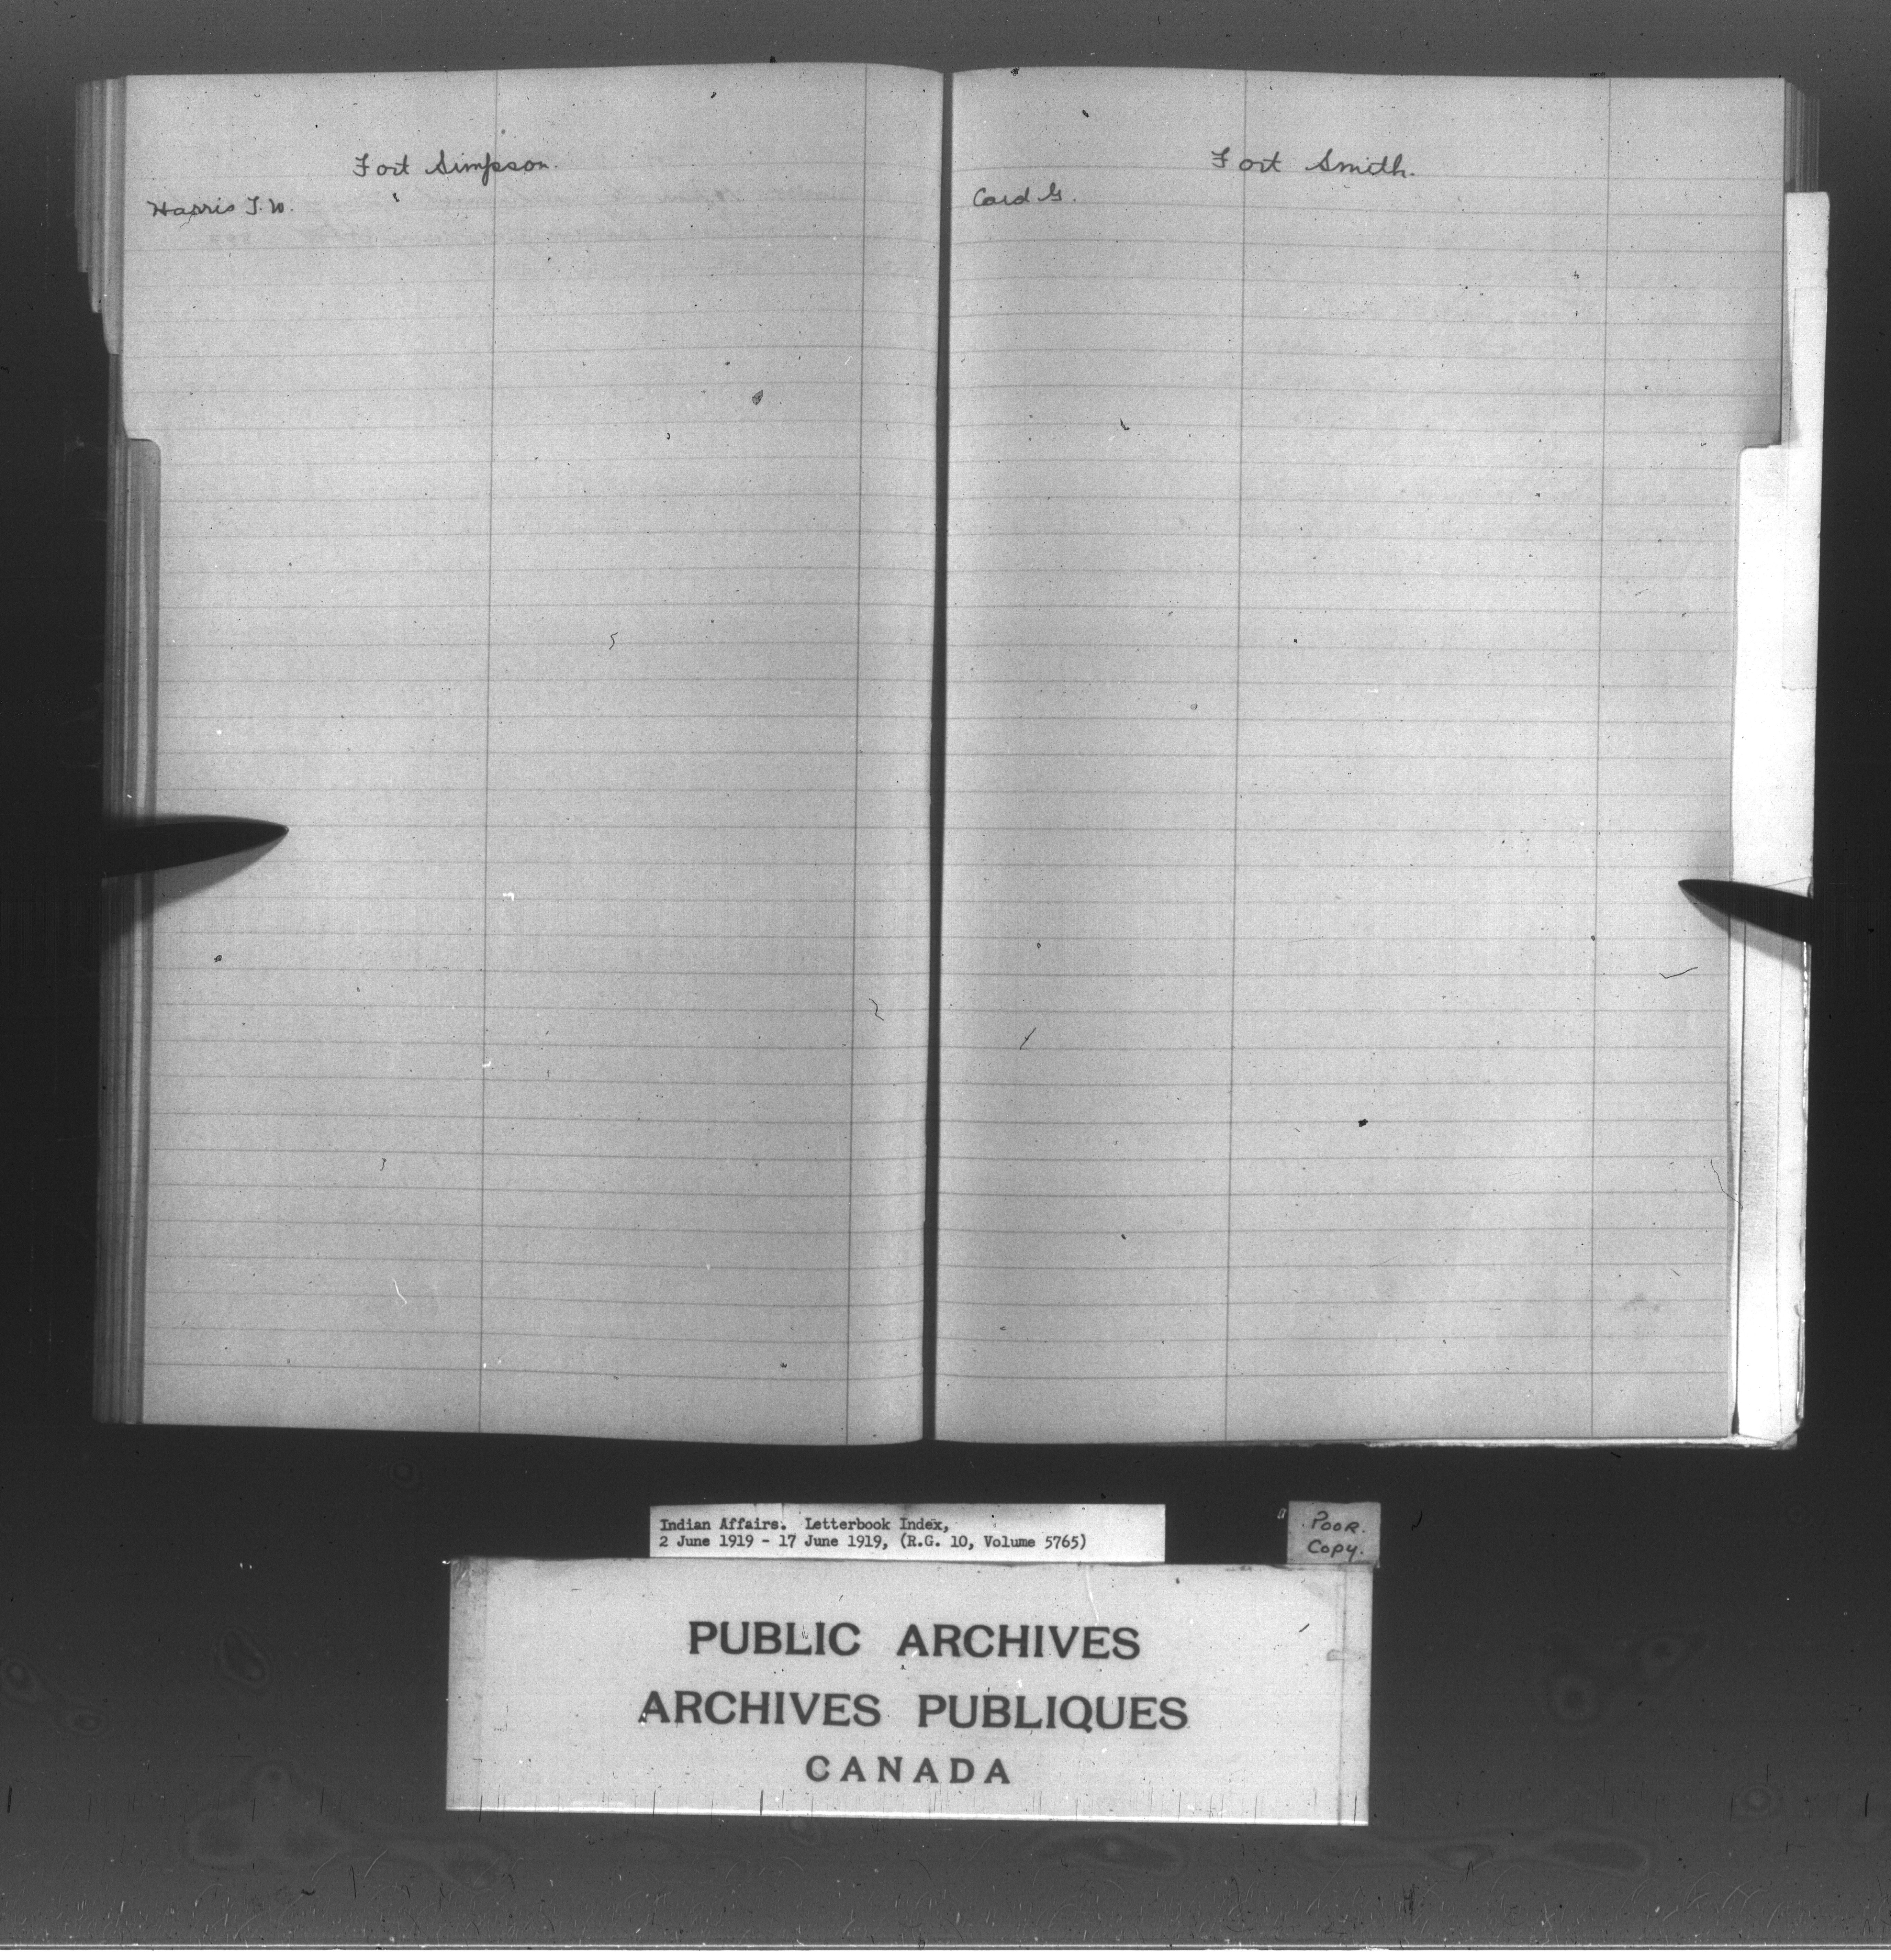 Fort Simpson.
Harris T. W.
Fort Smith.
Card G.
Indian Affairs. Letterbook Index,
2 June 1919 - 17 June 1919, (R.G. 10, Volume 5765)
POOR.
Copy.
PUBLIC ARCHIVES
ARCHIVES PUBLIQUES
CANADA